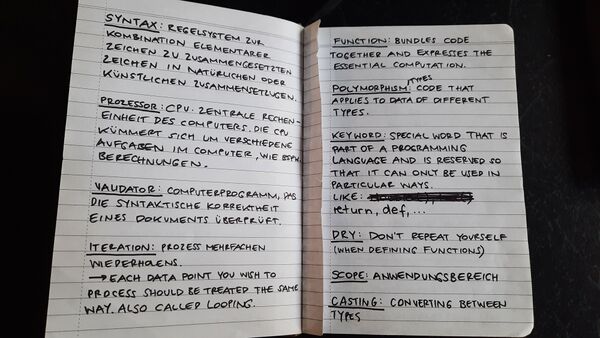 SYNTAX: REGELSYSTEM ZUR
KOMBINATION ELEMENTARER
ZEICHEN ZU ZUSAMMENGESETZTEN
ZEICHEN IN NATÜRLICHEN ODER
KÜNSTLICHEN ZUSAMMENSETZUGEN.
PROZESSOR: CPU. ZENTRALE RECHEN-
EINHEIT DES COMPUTERS. DIE CPU
KÜMMERT SICH UM VERSCHIEDENE
AUFGABEN IM COMPUTER, WIE BSPW.
BERECHNUNGEN.
VALIDATOR: COMPUTERPROGRAMM, DAS
DIE SYNTAKTISCHE KORREKTHEIT
EINES DOKUMENTS ÜBERPRÜFT.
ITERATION: PROZESS MEHRFACHEN
WIEDERHOLENS.
→ EACH DATA POINT YOU WISH TO
PROCESS SHOULD BE TREATED THE SAME
WAY. ALSO CALLED LOOPING.
FUNCTION: BUNDLES CODE
TOGETHER AND EXPRESSES THE
ESSENTIAL COMPUTATION.
TYPES
POLYMORPHISM: CODE THAT
APPLIES TO DATA OF DIFFERENT
TYPES.
KEYWORD: SPECIAL WORD THAT IS
PART OF A PROGRAMMING
LANGUAGE AND IS RESERVED SO
THAT IT CAN ONLY BE USED IN
PARTICULAR WAYS.
LIKE:
return, def, ...
DRY: DON'T REPEAT YOURSELF
(WHEN DEFINING FUNCTIONS)
SCOPE: ANWENDUNGSBEREICH
CASTING: CONVERTING BETWEEN
TYPES